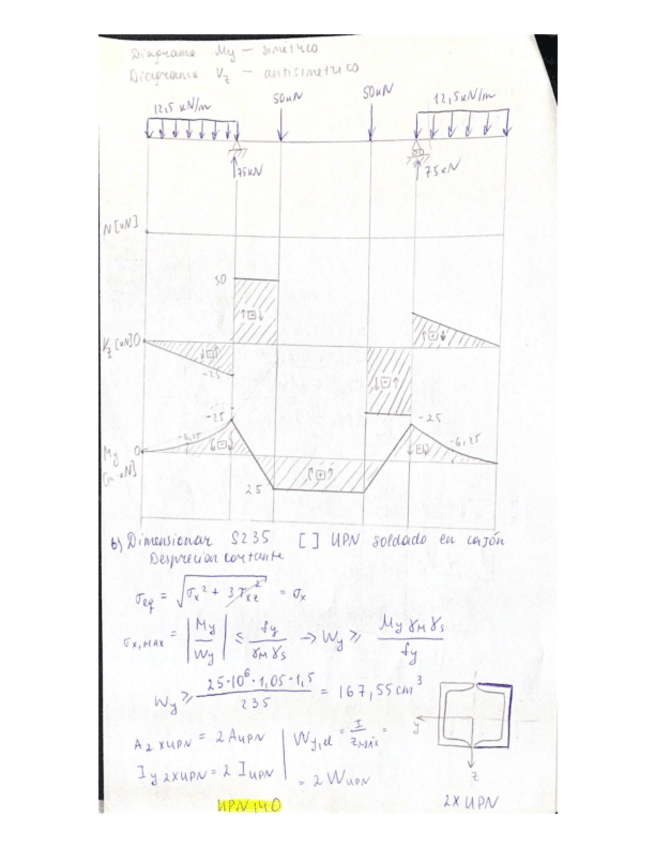 Diagrama My - simétrico
Diagrama Vz - antisimétrico
12,5 kN/m 50kN 50kN 12,5kN/m
75kN 75kN
N [kN]
50
Vz [kN] 0
-25
-25 -25
-6,25 -6,25
My 0
[m·kN]
25
b) Dimensionar S235 [ ] UPN soldado en cajón
Despreciar cortante
σeq = √(σx² + 3τxz²) = σx
σx,MAX = |My/Wy| ≤ fy/(γM γS) → Wy ≥ (My γM γS)/fy
Wy ≥ (25·10⁶·1,05·1,5)/235 = 167,55 cm³
A2xUPN = 2 AUPN | Wy,el = I/zmáx =
Iy 2xUPN = 2 IUPN | = 2 WUPN
y
z
UPN 140
2x UPN